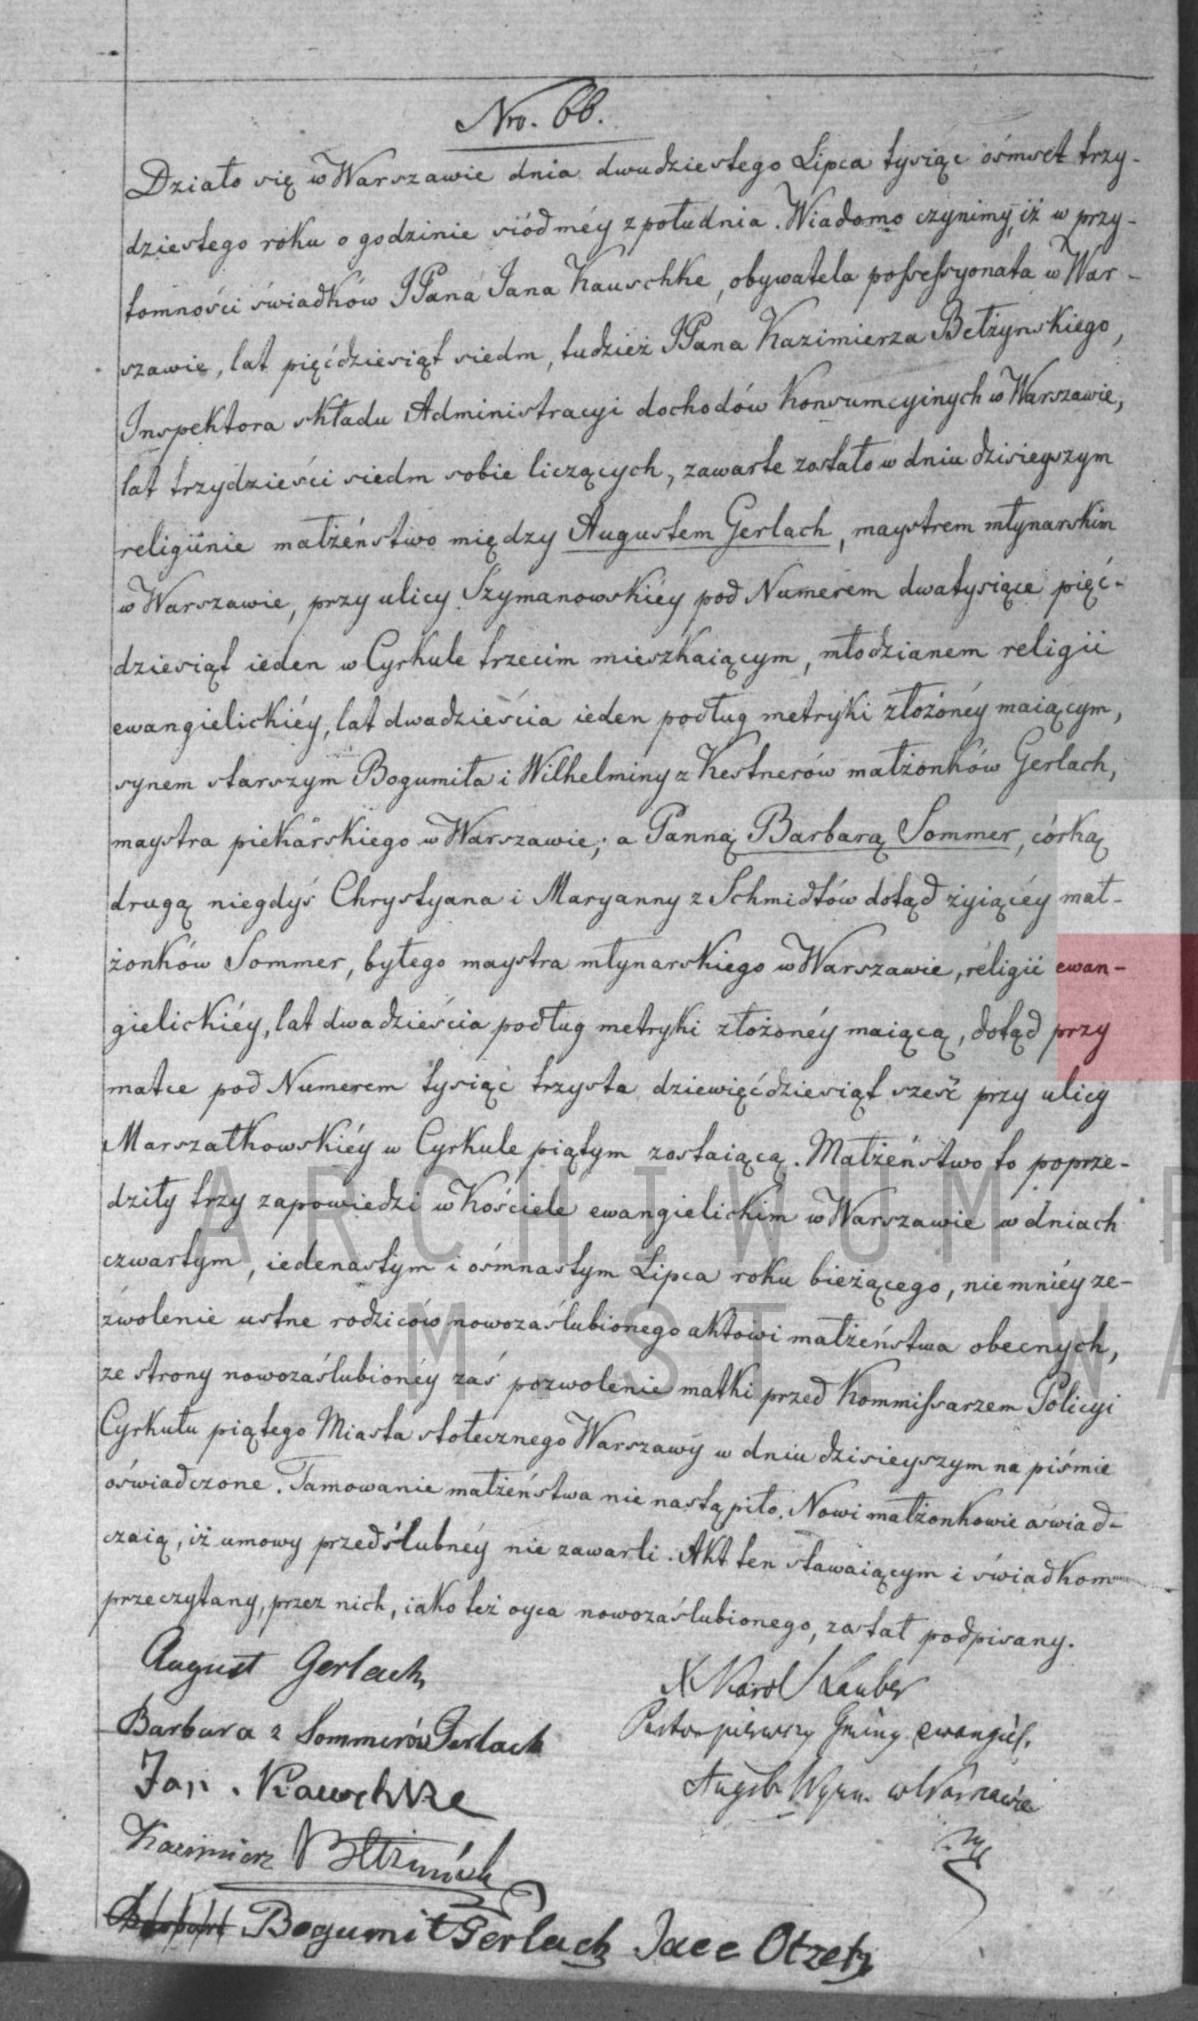 Nro. 66.
Działo się w Warszawie dnia dwudziestego Lipca tysiąc ośmset trzy-
dziestego roku o godzinie siódméy z południa. Wiadomo czynimy, iż w przy-
tomności świadków JPana Jana Kauschke, obywatela possessyonata w War-
szawie, lat pięćdziesiąt siedm, tudzież JPana Kazimierza Bełżynskiego,
Inspektora składu Administracyi dochodów Konsumcyinych w Warszawie,
lat trzydzieści siedm sobie liczących, zawarte zostało w dniu dzisieyszym
religiinie małżeństwo między Augustem Gerlach, maystrem młynarskim
w Warszawie, przy ulicy Szymanowskiéy pod Numerem dwatysiące pięć-
dziesiąt ieden w Cyrkule trzecim mieszkaiącym, młodzianem religii
ewangielickiéy, lat dwadzieścia ieden podług metryki złożonéy maiącym,
synem starszym Bogumiła i Wilhelminy z Kestnerów małżonków Gerlach,
maystra piekarskiego w Warszawie; a Panną Barbarą Sommer, córką
drugą niegdyś Chrystyana i Maryanny z Schmidtów dotąd żyiącéy mał-
żonków Sommer, byłego maystra młynarskiego w Warszawie, réligii ewan-
gielickiéy, lat dwadzieścia podług metryki złożonéy maiącą, dotąd przy
matce pod Numerem tysiąc trzysta dziewięćdziesiąt sześć przy ulicy
Marszałkowskiéy w Cyrkule piątym zostaiącą. Małżeństwo to poprze-
dziły trzy zapowiedzi w Kościele ewangielickim w Warszawie w dniach
czwartym, iedenastym i ośmnastym Lipca roku bieżącego, niemniéy ze-
zwolenie ustne rodziców nowozaślubionego aktowi małżeństwa obecnych,
ze strony nowozaślubionéy zaś pozwolenie matki przed Kommissarzem Policyi
Cyrkułu piątego Miasta stołecznego Warszawy w dniu dzisieyszym na piśmie
oświadczone. Tamowanie małżeństwa nie nastąpiło. Nowi małżonkowie oświad-
czaią, iż umowy przedślubnéy nie zawarli. Akt ten stawaiącym i świadkom
przeczytany, przez nich, iako też oyca nowozaślubionego, został podpisany.
August Gerlach
X Karol Lauber
Barbara z Sommerów Gerlach
Pastor pierwszy Gminy ewangiel.
Jan. Kauschke
Augsb. Wyzn. w Warszawie
Kazimierz Bełżyński
Bogumił Gerlach Jace Otzetz
ARCHIWUM P
M. ST. WA